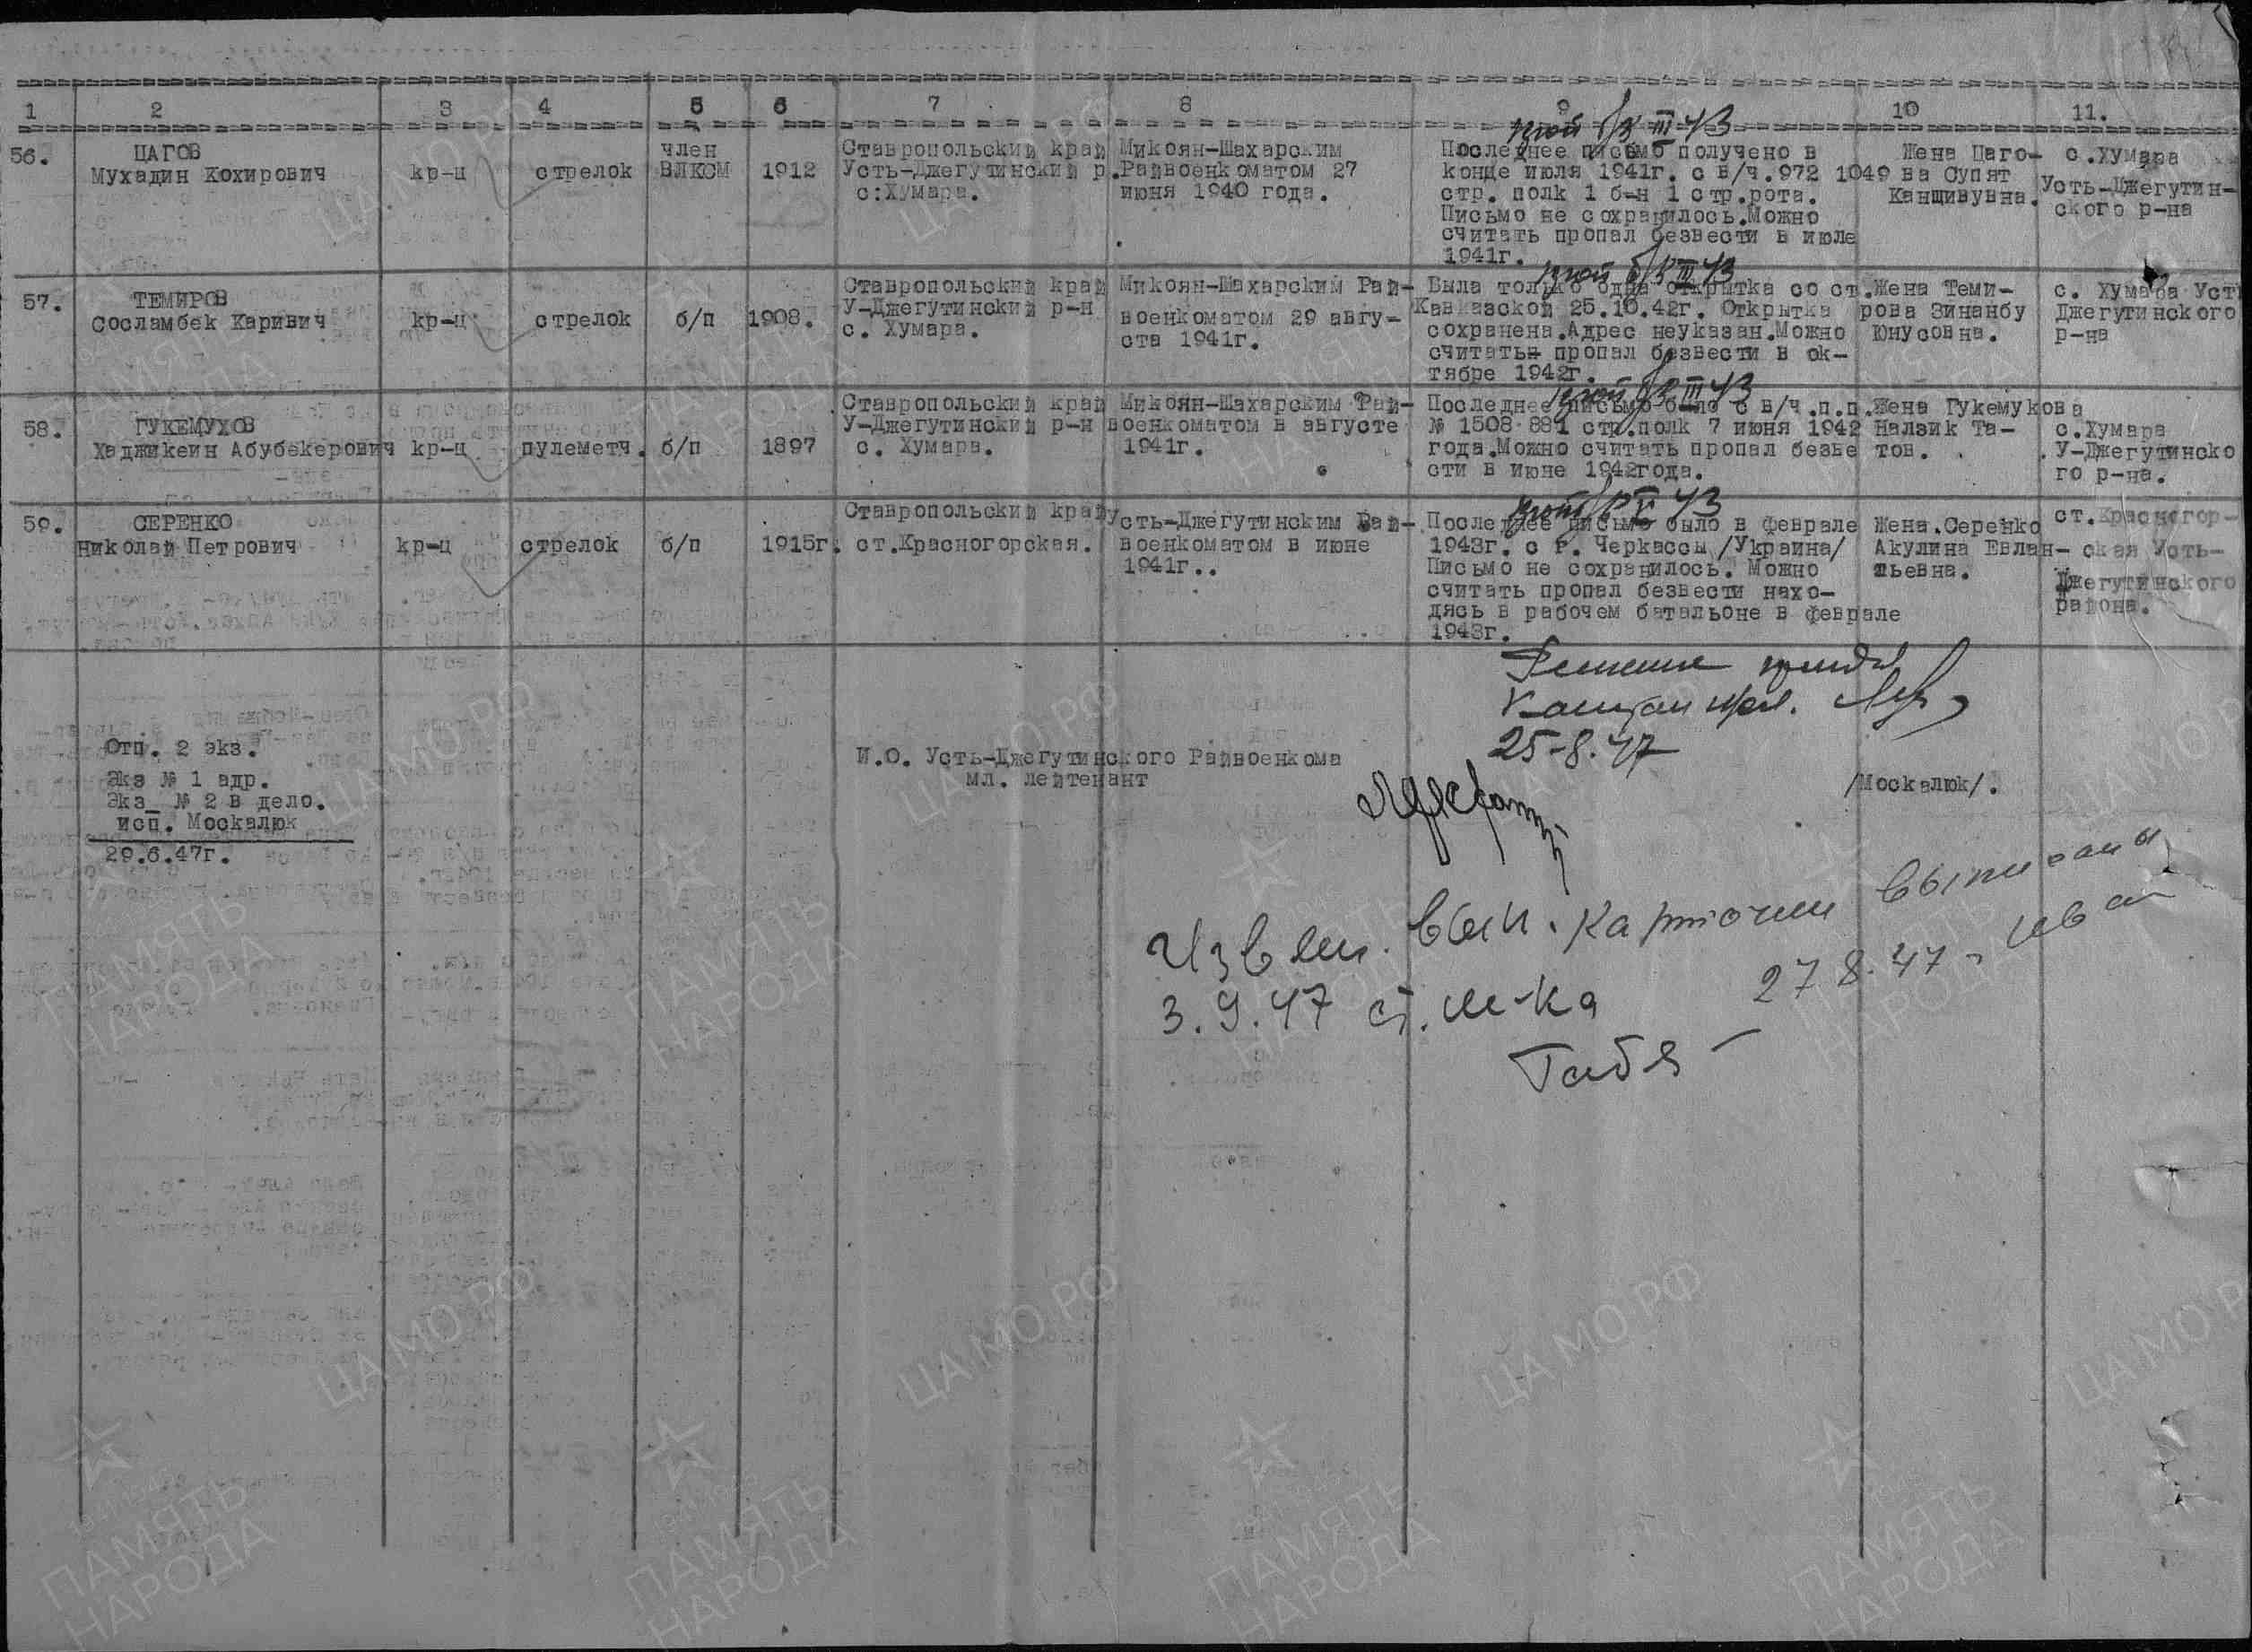 1 2 3 4 5 6 7 8 9 10 11.
56. ЦАГОВ
Мухадин Кохирович
кр-ц
стрелок
член
ВЛКСМ
1912
Ставропольский край
Усть-Джегутинский р.
с:Хумара.
Микоян-Шахарским
Райвоенкоматом 27
июня 1940 года.
III 43
Последнее письмо получено в
конце июля 1941г. с в/ч.972 1049
стр. полк 1 б-н 1 стр.рота.
Письмо не сохранилось.Можно
считать пропал безвести в июле
1941г.
Жена Цаго-
ва Супят
Канщивувна.
с.Хумара
Усть-Джегутин-
ского р-на
57. ТЕМИРОВ
Сосламбек Каривич
кр-ц
стрелок
б/п
1908.
Ставропольский край
У-Джегутинский р-н
с. Хумара.
Микоян-Шахарским Рай-
военкоматом 29 авгу-
ста 1941г.
III 43
Была только одна открытка со ст.
Кавказской 25.10.42г. Открытка
сохранена.Адрес неуказан.Можно
считать пропал безвести в ок-
тябре 1942г.
Жена Теми-
рова Зинанбу
Юнусовна.
с. Хумара Уст
Джегутинского
р-на
58. ГУКЕМУХОВ
Хаджикеин Абубекерович
кр-ц
пулеметч.
б/п
1897
Ставропольский край
У-Джегутинский р-н
с. Хумара.
Микоян-Шахарским Рай-
военкоматом в августе
1941г.
III 43
Последнее письмо было с в/ч.п.п.
№ 1508 881 стр.полк 7 июня 1942
года.Можно считать пропал безве
сти в июне 1942года.
Жена Гукемукова
Налзик Та-
тов.
с.Хумара
У-Джегутинско
го р-на.
59. СЕРЕНКО
Николай Петрович
кр-ц
стрелок
б/п
1915г.
Ставропольский край
ст.Красногорская.
Усть-Джегутинским Рай-
военкоматом в июне
1941г..
V 43
Последнее письмо было в феврале
1943г. с г. Черкассы /Украина/
Письмо не сохранилось. Можно
считать пропал безвести нахо-
дясь в рабочем батальоне в феврале
1943г.
Жена.Серенко
Акулина Евлан-
пьевна.
ст.Красногор-
ская Усть-
Джегутинского
района.
Капитан
25-8.47
Отп. 2 экз.
Экз № 1 адр.
Экз_ № 2 в дело.
исп. Москалюк
29.6.47г.
И.О. Усть-Джегутинского Райвоенкома
мл. лейтенант
/Москалюк/.
Извещ. вып. карточки выписаны
3.9.47 ст. л-ка 27 8.47
ЦАМО.РФ
ПАМЯТЬ
НАРОДА